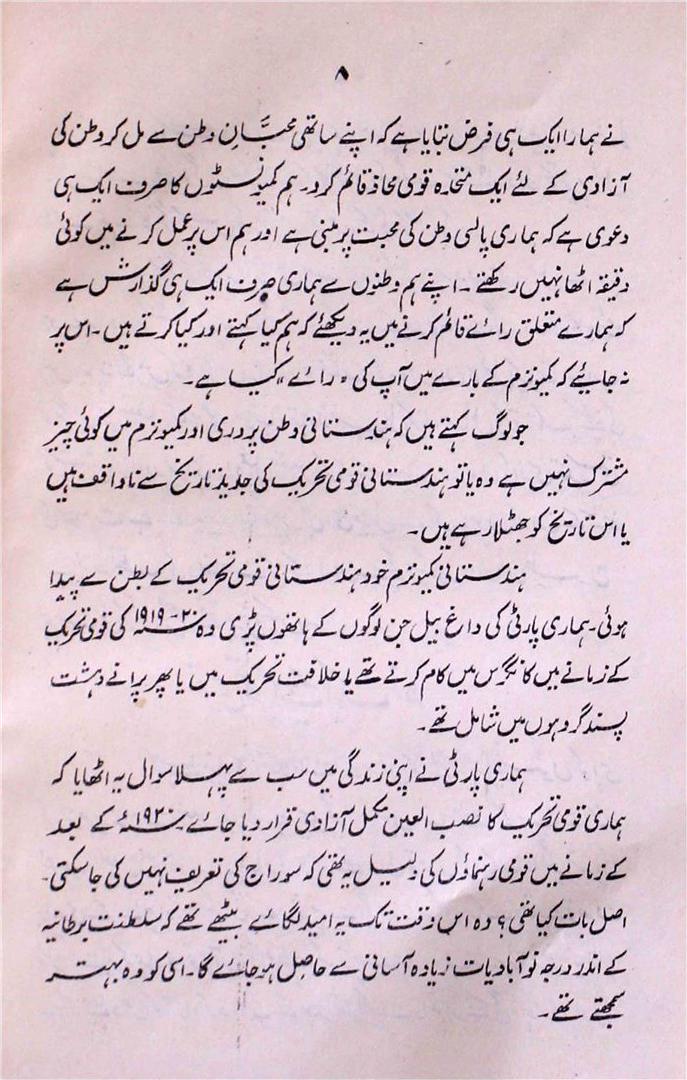 ۸
نے ہمارا ایک ہی فرض بتایا ہے کہ اپنے ساتھی محبّانِ وطن سے مل کر وطن کی
آزادی کے لئے ایک متحدہ قومی محاذ قائم کرو۔ ہم کمیونسٹوں کا صرف ایک ہی
دعویٰ ہے کہ ہماری پالسی وطن کی محبت پر مبنی ہے اور ہم اس پر عمل کرنے میں کوئی
دقیقہ اٹھا نہیں رکھتے ۔ اپنے ہم وطنوں سے ہماری صرف ایک ہی گذارش ہے
کہ ہمارے متعلق رائے قائم کرنے میں یہ دیکھئے کہ ہم کیا کہتے اور کیا کرتے ہیں۔ اس پر
نہ جایئے کہ کمیونزم کے بارے میں آپ کی "رائے" کیا ہے۔
جو لوگ کہتے ہیں کہ ہندستانی وطن پروری اور کمیونزم میں کوئی چیز
مشترک نہیں ہے وہ یا تو ہندستانی قومی تحریک کی جدید تاریخ سے ناواقف ہیں
یا اس تاریخ کو جھٹلا رہے ہیں۔
ہندستانی کمیونزم خود ہندستانی قومی تحریک کے بطن سے پیدا
ہوئی۔ ہماری پارٹی کی داغ بیل جن لوگوں کے ہاتھوں پڑی وہ ۲۰-۱۹۱۹ء کی قومی تحریک
کے زمانے میں کانگرس میں کام کرتے تھے یا خلافت تحریک میں یا پھر پرانے دہشت
پسند گروہوں میں شامل تھے۔
ہماری پارٹی نے اپنی زندگی میں سب سے پہلا سوال یہ اٹھایا کہ
ہماری قومی تحریک کا نصب العین مکمل آزادی قرار دیا جائے ۱۹۲۰ء کے بعد
کے زمانے میں قومی رہنماؤں کی دلیل یہ تھی کہ سوراج کی تعریف نہیں کی جاسکتی۔
اصل بات کیا تھی؟ وہ اس وقت تک یہ امید لگائے بیٹھے تھے کہ سلطنت برطانیہ
کے اندر درجہ نوآبادیات زیادہ آسانی سے حاصل ہوجائے گا۔ اسی کو وہ بہتر
سمجھتے تھے۔